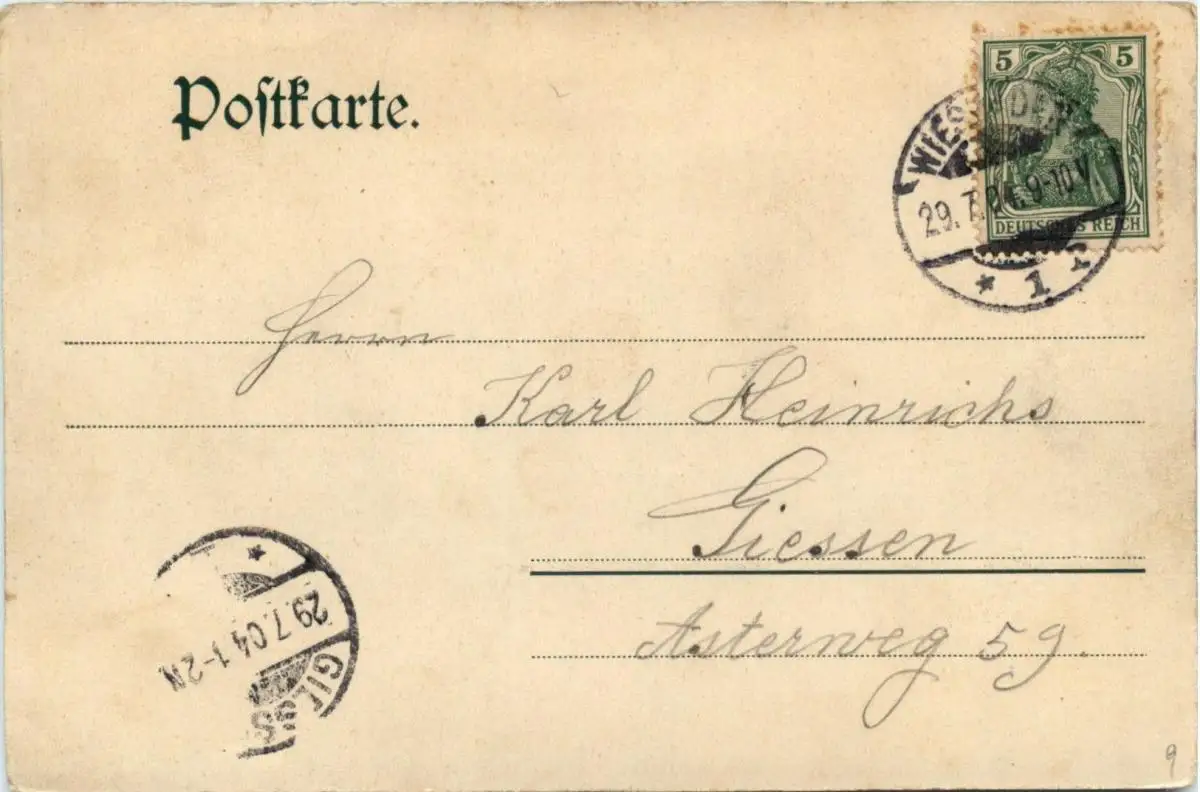 Postkarte.
5 5
DEUTSCHES REICH
WIESBADEN
29.7.04. 9-10 V.
* 1
Herrn
Karl Heinrichs
Giessen
Asterweg 59.
*
29.7.04 1-2N
GIESS
9